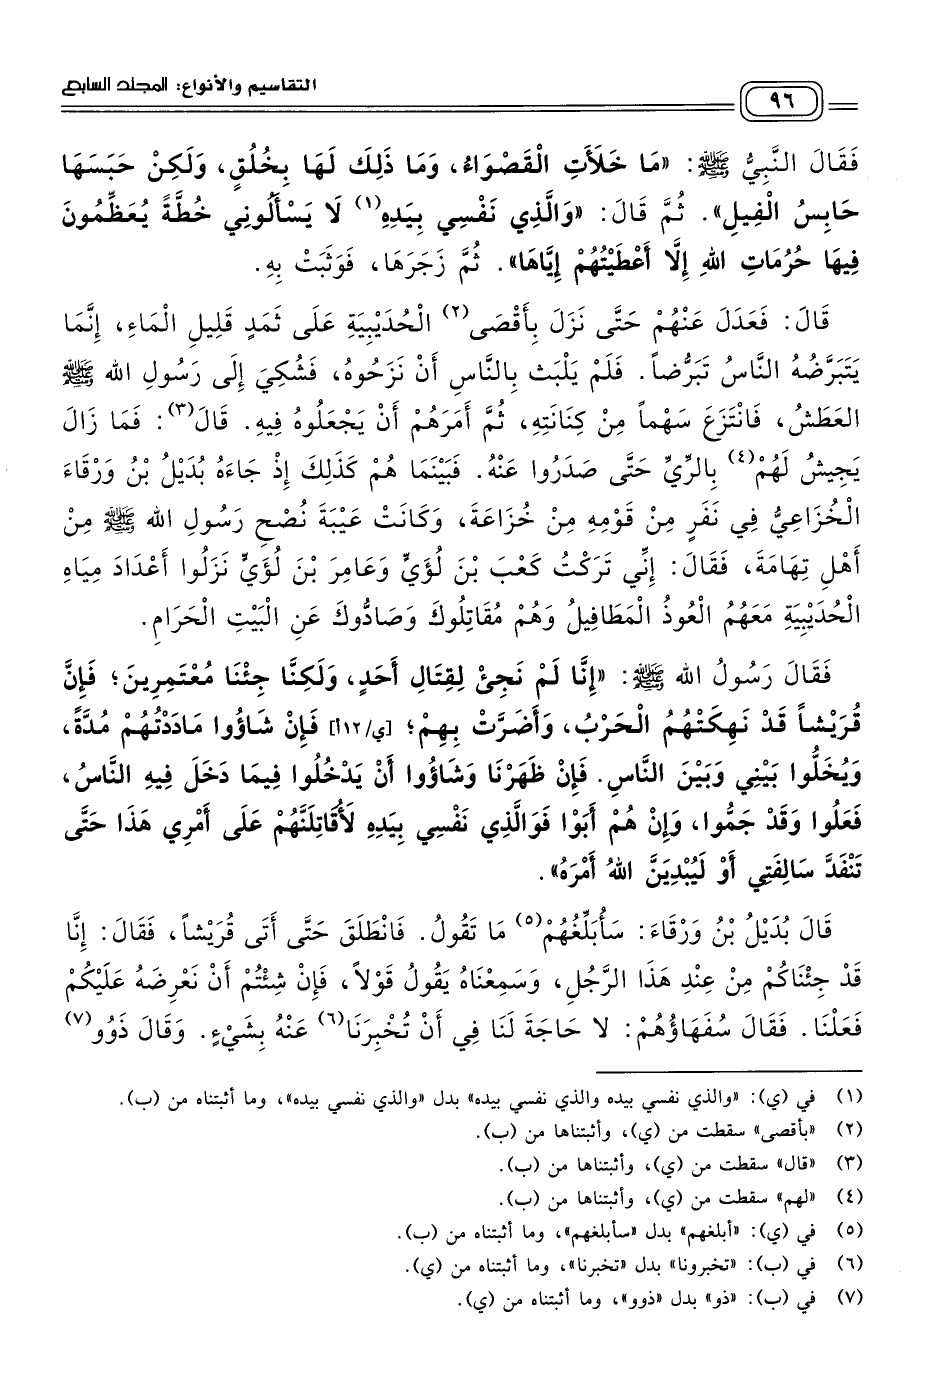 التقاسيم والأنواع: المجلد السابع
٩٦
فَقَالَ النَّبِيُّ ﷺ: «مَا خَلَأَتِ الْقَصْوَاءُ، وَمَا ذَلِكَ لَهَا بِخُلُقٍ، وَلَكِنْ حَبَسَهَا
حَابِسُ الْفِيلِ». ثُمَّ قَالَ: «وَالَّذِي نَفْسِي بِيَدِهِ(١) لَا يَسْأَلُونِي خُطَّةً يُعَظِّمُونَ
فِيهَا حُرُمَاتِ اللهِ إِلَّا أَعْطَيْتُهُمْ إِيَّاهَا». ثُمَّ زَجَرَهَا، فَوَثَبَتْ بِهِ.
قَالَ: فَعَدَلَ عَنْهُمْ حَتَّى نَزَلَ بِأَقْصَى(٢) الْحُدَيْبِيَةِ عَلَى ثَمَدٍ قَلِيلِ الْمَاءِ، إِنَّمَا
يَتَبَرَّضُهُ النَّاسُ تَبَرُّضاً. فَلَمْ يَلْبَثْ بِالنَّاسِ أَنْ نَزَحُوهُ، فَشُكِيَ إِلَى رَسُولِ اللهِ ﷺ
العَطَشُ، فَانْتَزَعَ سَهْماً مِنْ كِنَانَتِهِ، ثُمَّ أَمَرَهُمْ أَنْ يَجْعَلُوهُ فِيهِ. قَالَ(٣): فَمَا زَالَ
يَجِيشُ لَهُمْ(٤) بِالرِّيِّ حَتَّى صَدَرُوا عَنْهُ. فَبَيْنَمَا هُمْ كَذَلِكَ إِذْ جَاءَهُ بُدَيْلُ بْنُ وَرْقَاءَ
الْخُزَاعِيُّ فِي نَفَرٍ مِنْ قَوْمِهِ مِنْ خُزَاعَةَ، وَكَانَتْ عَيْبَةَ نُصْحِ رَسُولِ اللهِ ﷺ مِنْ
أَهْلِ تِهَامَةَ، فَقَالَ: إِنِّي تَرَكْتُ كَعْبَ بْنَ لُؤَيٍّ وَعَامِرَ بْنَ لُؤَيٍّ نَزَلُوا أَعْدَادَ مِيَاهِ
الْحُدَيْبِيَةِ مَعَهُمُ الْعُوذُ الْمَطَافِيلُ وَهُمْ مُقَاتِلُوكَ وَصَادُّوكَ عَنِ الْبَيْتِ الْحَرَامِ.
فَقَالَ رَسُولُ اللهِ ﷺ: «إِنَّا لَمْ نَجِئْ لِقِتَالِ أَحَدٍ، وَلَكِنَّا جِئْنَا مُعْتَمِرِينَ؛ فَإِنَّ
قُرَيْشاً قَدْ نَهِكَتْهُمُ الْحَرْبُ، وَأَضَرَّتْ بِهِمْ؛ [ي/١٢أ] فَإِنْ شَاؤُوا مَادَدْتُهُمْ مُدَّةً،
وَيُخَلُّوا بَيْنِي وَبَيْنَ النَّاسِ. فَإِنْ ظَهَرْنَا وَشَاؤُوا أَنْ يَدْخُلُوا فِيمَا دَخَلَ فِيهِ النَّاسُ،
فَعَلُوا وَقَدْ جَمُّوا، وَإِنْ هُمْ أَبَوْا فَوَالَّذِي نَفْسِي بِيَدِهِ لَأُقَاتِلَنَّهُمْ عَلَى أَمْرِي هَذَا حَتَّى
تَنْفَدَّ سَالِفَتِي أَوْ لَيُبْدِيَنَّ اللهُ أَمْرَهُ».
قَالَ بُدَيْلُ بْنُ وَرْقَاءَ: سَأُبَلِّغُهُمْ(٥) مَا تَقُولُ. فَانْطَلَقَ حَتَّى أَتَى قُرَيْشاً، فَقَالَ: إِنَّا
قَدْ جِئْنَاكُمْ مِنْ عِنْدِ هَذَا الرَّجُلِ، وَسَمِعْنَاهُ يَقُولُ قَوْلاً، فَإِنْ شِئْتُمْ أَنْ نَعْرِضَهُ عَلَيْكُمْ
فَعَلْنَا. فَقَالَ سُفَهَاؤُهُمْ: لا حَاجَةَ لَنَا فِي أَنْ تُخْبِرَنَا(٦) عَنْهُ بِشَيْءٍ. وَقَالَ ذَوُو(٧)
(١) في (ي): «والذي نفسي بيده والذي نفسي بيده» بدل «والذي نفسي بيده»، وما أثبتناه من (ب).
(٢) «بأقصى» سقطت من (ي)، وأثبتناها من (ب).
(٣) «قال» سقطت من (ي)، وأثبتناها من (ب).
(٤) «لهم» سقطت من (ي)، وأثبتناها من (ب).
(٥) في (ي): «أبلغهم» بدل «سأبلغهم»، وما أثبتناه من (ب).
(٦) في (ب): «تخبرونا» بدل «تخبرنا»، وما أثبتناه من (ي).
(٧) في (ب): «ذو» بدل «ذوو»، وما أثبتناه من (ي).